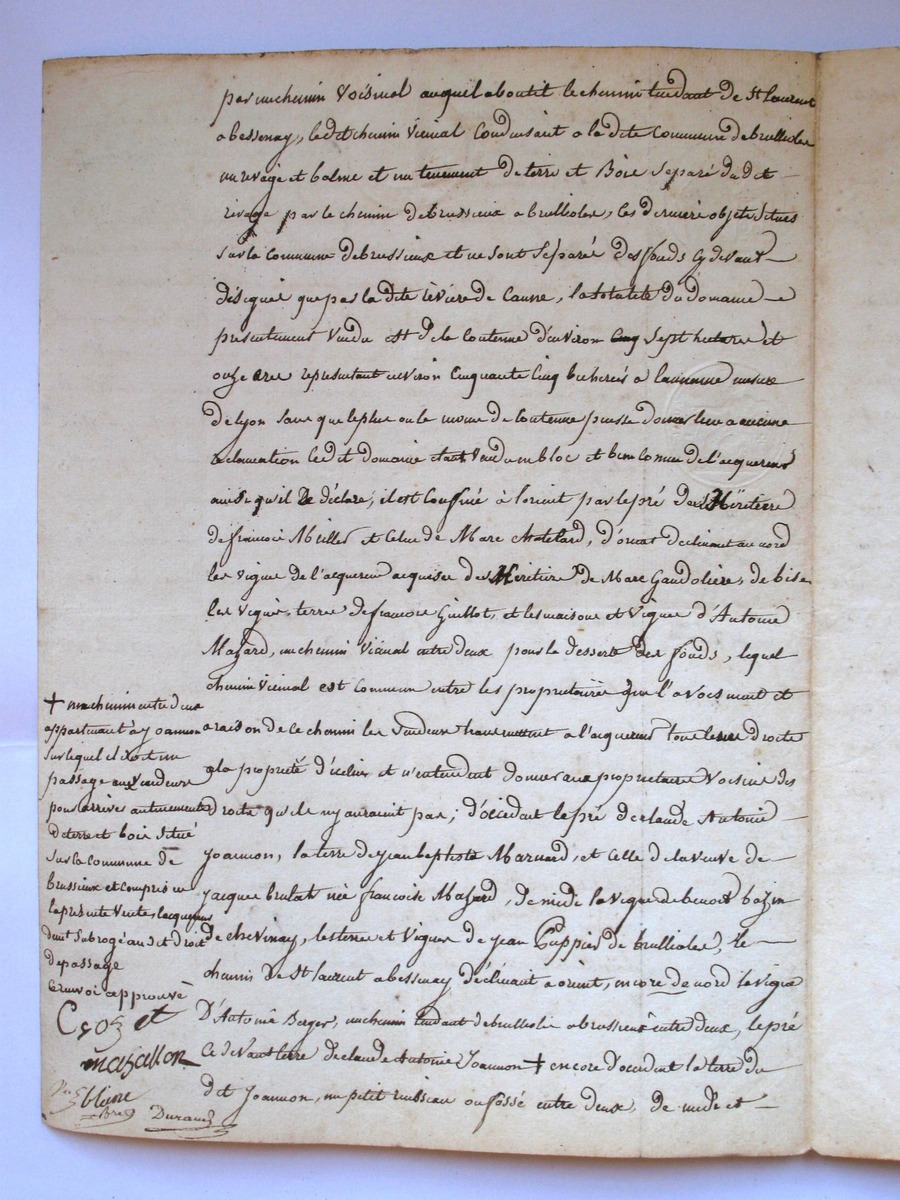 par un chemin Voisinal auquel aboutit le chemin tendant de St laurent
a bessenay, le dit chemin Vicinal Conduisant a la dite Commune de brulliolles
un rivage et balme et un tenement de terre et Bois Séparé du dit
rivage par le chemin de brussieux a brulliolles, les dernier objets situés
sur la Commune de brussieux et ne sont séparé des fonds cy devant
désigné que par la dite rivière de , la totalité du domaine
présentement Vendu est de la Contenue d'environ Sept hectares et
onze are représentant environ Cinquante Cinq bicherées a l'ancienne mesure
de lyon sans que le plus ou le moins de Contenue puisse donner lieu a aucune
réclamation le dit domaine étant Vendu en bloc et bien Connu de l'acquereur
ainsi qu'il le déclare; il est Confiné à l'orient par le pré des Héritiers
de francois et Celui de Marc Chatelard, d'orient déclinant au nord
les vignes de l'acquereur acquises des Héritiers de Marc Gandolière, de bise
les Vignes, terre de francois Guillot, et les maisons et Vignes d'Antoine
Mazard, un chemin Vicinal entre deux pour la desserte des fonds, lequel
chemin Vicinal est Commun entre les propriétaires qui l'avoisinent et
a raison de ce chemin les Vendeurs transmettent a l'acquereur tous leurs droits
a la propriété d'icelui et n'entendent donner aux propriétaires Voisins des
droits qu'ils n'y auraient pas; d'occident le pré de claude Antoine
Joannon, la terre de jean baptiste Marnard, et Celle de la veuve de
jacques brulat née francoise Mazard, de midi la vigne de benoit bazin
de chevinay, les terres et Vignes de jean Puppier de brulliolles, le
chemin de St laurent a bessenay déclinant a orient, encore de nord la vigne
D'Antoine Berger, un chemin tendant de brulliolle a brussieux entre deux, le pré
Ce devant terre de claude Antoine Joannon + encore d'occident la terre du
dit Joannon, un petit ruisseau ou fossé entre deux, de midi et
+ un chemin entre deux
appartenant a joannon
sur lequel il existe un
passage aux Vendeurs
pour arriver au tenement
de terre et bois situé
sur la Commune de
brussieux et compris en
la présente Vente, l'acquereur
étant subrogé au dit droit
de passage
Ce renvoi approuvé
et
mazallon
Durand